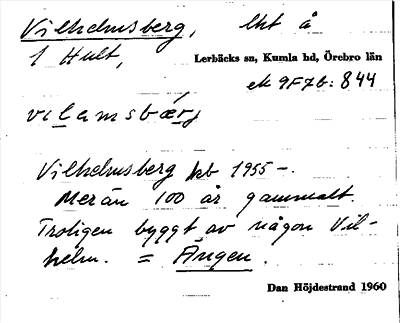 Vilhelmsberg, lht å
1 Hult,
Lerbäcks sn, Kumla hd, Örebro län
ek 9F7b: 844
vilamsbærj
Vilhelmsberg kb 1955 –.
Mer än 100 år gammalt.
Troligen byggt av någon Vil-
helm. = Ängen.
Dan Höjdestrand 1960